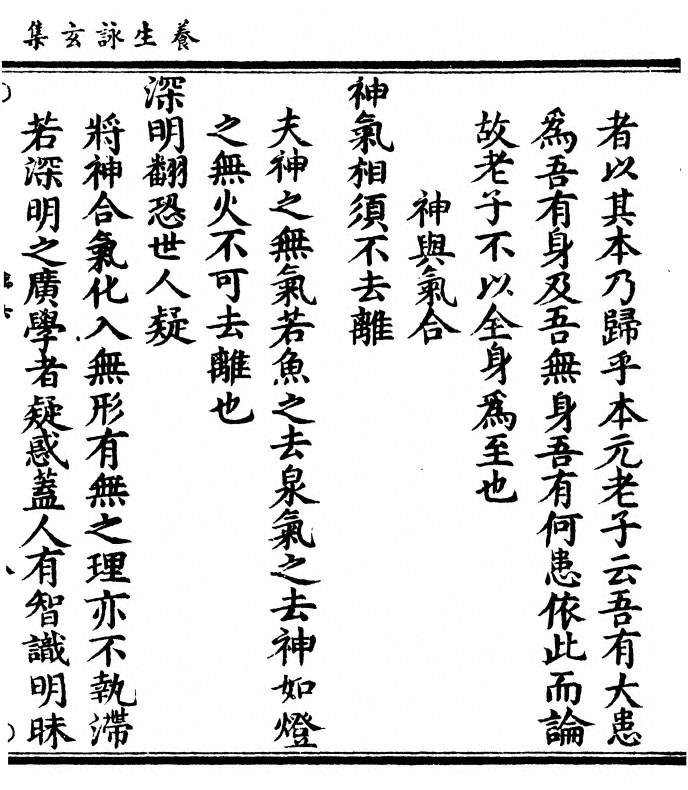 養生詠玄集
者以其本乃歸乎本元老子云吾有大患
為吾有身及吾無身吾有何患依此而論
故老子不以全身為至也
神與氣合
神氣相須不去離
夫神之無氣若魚之去泉氣之去神如燈
之無火不可去離也
深明翻恐世人疑
將神合氣化入無形有無之理亦不執滯
若深明之廣學者疑惑蓋人有智識明昧